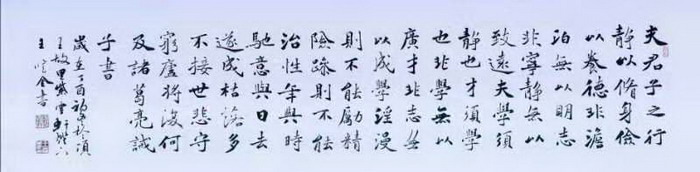 夫君子之行
靜以脩身儉
以養德非澹
泊無以明志
非寧靜無以
致遠夫學須
靜也才須學
也非學無以
廣才非志無
以成學淫漫
則不能勵精
險躁則不能
治性年與時
馳意與日去
遂成枯落多
不接世悲守
窮廬將復何
及諸葛亮誡
子書
歲在丁酉初冬於項
王故里
王書